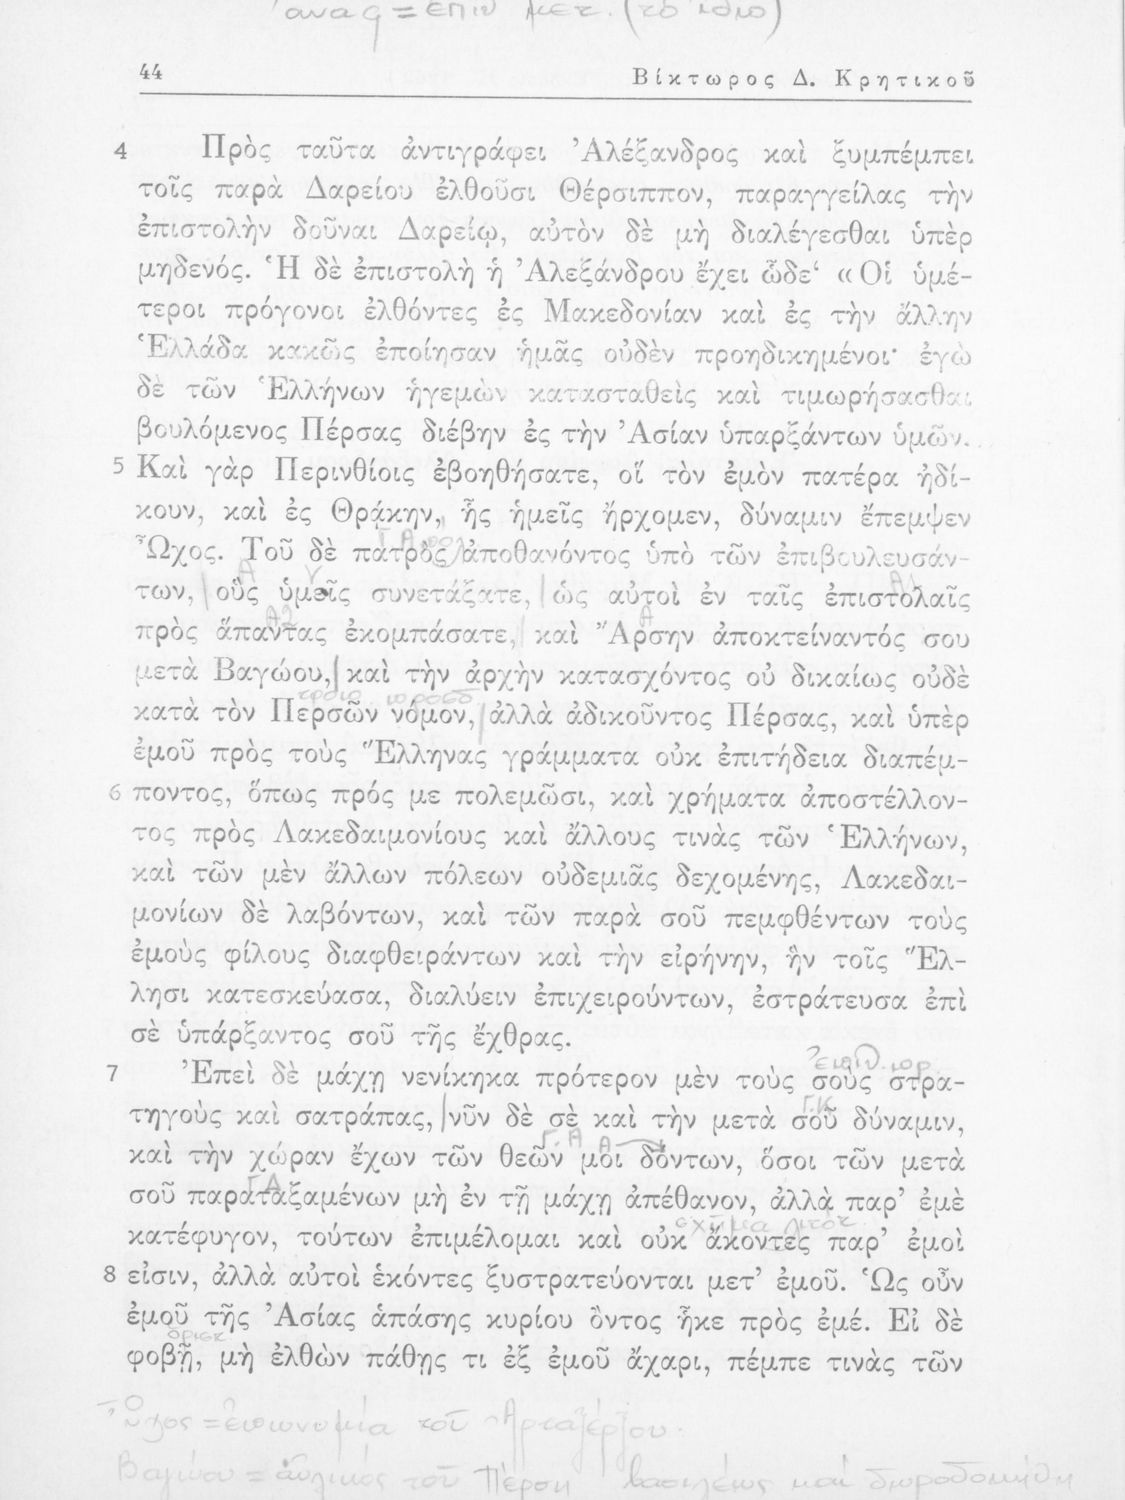 44
Βίκτωρος Δ. Κρητικοῦ
4 Πρὸς ταῦτα ἀντιγράφει Ἀλέξανδρος καὶ ξυμπέμπει
τοῖς παρὰ Δαρείου ἐλθοῦσι Θέρσιππον, παραγγείλας τὴν
ἐπιστολὴν δοῦναι Δαρείῳ, αὐτὸν δὲ μὴ διαλέγεσθαι ὑπὲρ
μηδενός. Ἡ δὲ ἐπιστολὴ ἡ Ἀλεξάνδρου ἔχει ὧδε· «Οἱ ὑμέ-
τεροι πρόγονοι ἐλθόντες ἐς Μακεδονίαν καὶ ἐς τὴν ἄλλην
Ἑλλάδα κακῶς ἐποίησαν ἡμᾶς οὐδὲν προηδικημένοι· ἐγὼ
δὲ τῶν Ἑλλήνων ἡγεμὼν κατασταθεὶς καὶ τιμωρήσασθαι
βουλόμενος Πέρσας διέβην ἐς τὴν Ἀσίαν ὑπαρξάντων ὑμῶν.
5 Καὶ γὰρ Περινθίοις ἐβοηθήσατε, οἵ τὸν ἐμὸν πατέρα ἠδί-
κουν, καὶ ἐς Θράκην, ἧς ἡμεῖς ἤρχομεν, δύναμιν ἔπεμψεν
Ὦχος. Τοῦ δὲ πατρὸς ἀποθανόντος ὑπὸ τῶν ἐπιβουλευσάν-
των, οὓς ὑμεῖς συνετάξατε, ὡς αὐτοὶ ἐν ταῖς ἐπιστολαῖς
πρὸς ἅπαντας ἐκομπάσατε, καὶ Ἄρσην ἀποκτείναντός σου
μετὰ Βαγώου, καὶ τὴν ἀρχὴν κατασχόντος οὐ δικαίως οὐδὲ
κατὰ τὸν Περσῶν νόμον, ἀλλὰ ἀδικοῦντος Πέρσας, καὶ ὑπὲρ
ἐμοῦ πρὸς τοὺς Ἕλληνας γράμματα οὐκ ἐπιτήδεια διαπέμ-
6 ποντος, ὅπως πρός με πολεμῶσι, καὶ χρήματα ἀποστέλλον-
τος πρὸς Λακεδαιμονίους καὶ ἄλλους τινὰς τῶν Ἑλλήνων,
καὶ τῶν μὲν ἄλλων πόλεων οὐδεμιᾶς δεχομένης, Λακεδαι-
μονίων δὲ λαβόντων, καὶ τῶν παρὰ σοῦ πεμφθέντων τοὺς
ἐμοὺς φίλους διαφθειράντων καὶ τὴν εἰρήνην, ἣν τοῖς Ἕλ-
λησι κατεσκεύασα, διαλύειν ἐπιχειρούντων, ἐστράτευσα ἐπὶ
σὲ ὑπάρξαντος σοῦ τῆς ἔχθρας.
7 Ἐπεὶ δὲ μάχῃ νενίκηκα πρότερον μὲν τοὺς σοὺς στρα-
τηγοὺς καὶ σατράπας, νῦν δὲ σὲ καὶ τὴν μετὰ σοῦ δύναμιν,
καὶ τὴν χώραν ἔχων τῶν θεῶν μοι δόντων, ὅσοι τῶν μετὰ
σοῦ παραταξαμένων μὴ ἐν τῇ μάχῃ ἀπέθανον, ἀλλὰ παρ' ἐμὲ
κατέφυγον, τούτων ἐπιμέλομαι καὶ οὐκ ἄκοντες παρ' ἐμοὶ
8 εἰσιν, ἀλλὰ αὐτοὶ ἑκόντες ξυστρατεύονται μετ' ἐμοῦ. Ὡς οὖν
ἐμοῦ τῆς Ἀσίας ἁπάσης κυρίου ὄντος ἧκε πρὸς ἐμέ. Εἰ δὲ
φοβῇ, μὴ ἐλθὼν πάθῃς τι ἐξ ἐμοῦ ἄχαρι, πέμπε τινὰς τῶν
= ἐπωνυμία τοῦ Ἀρταξέρξου.
= αὐλικός τοῦ Πέρση βασιλέως καὶ